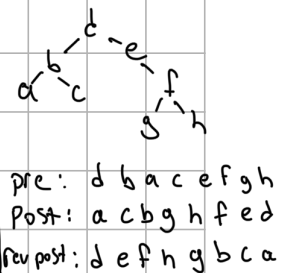 d
b e
a c f
g h
pre: d b a c e f g h
post: a c b g h f e d
rev post: d e f h g b c a